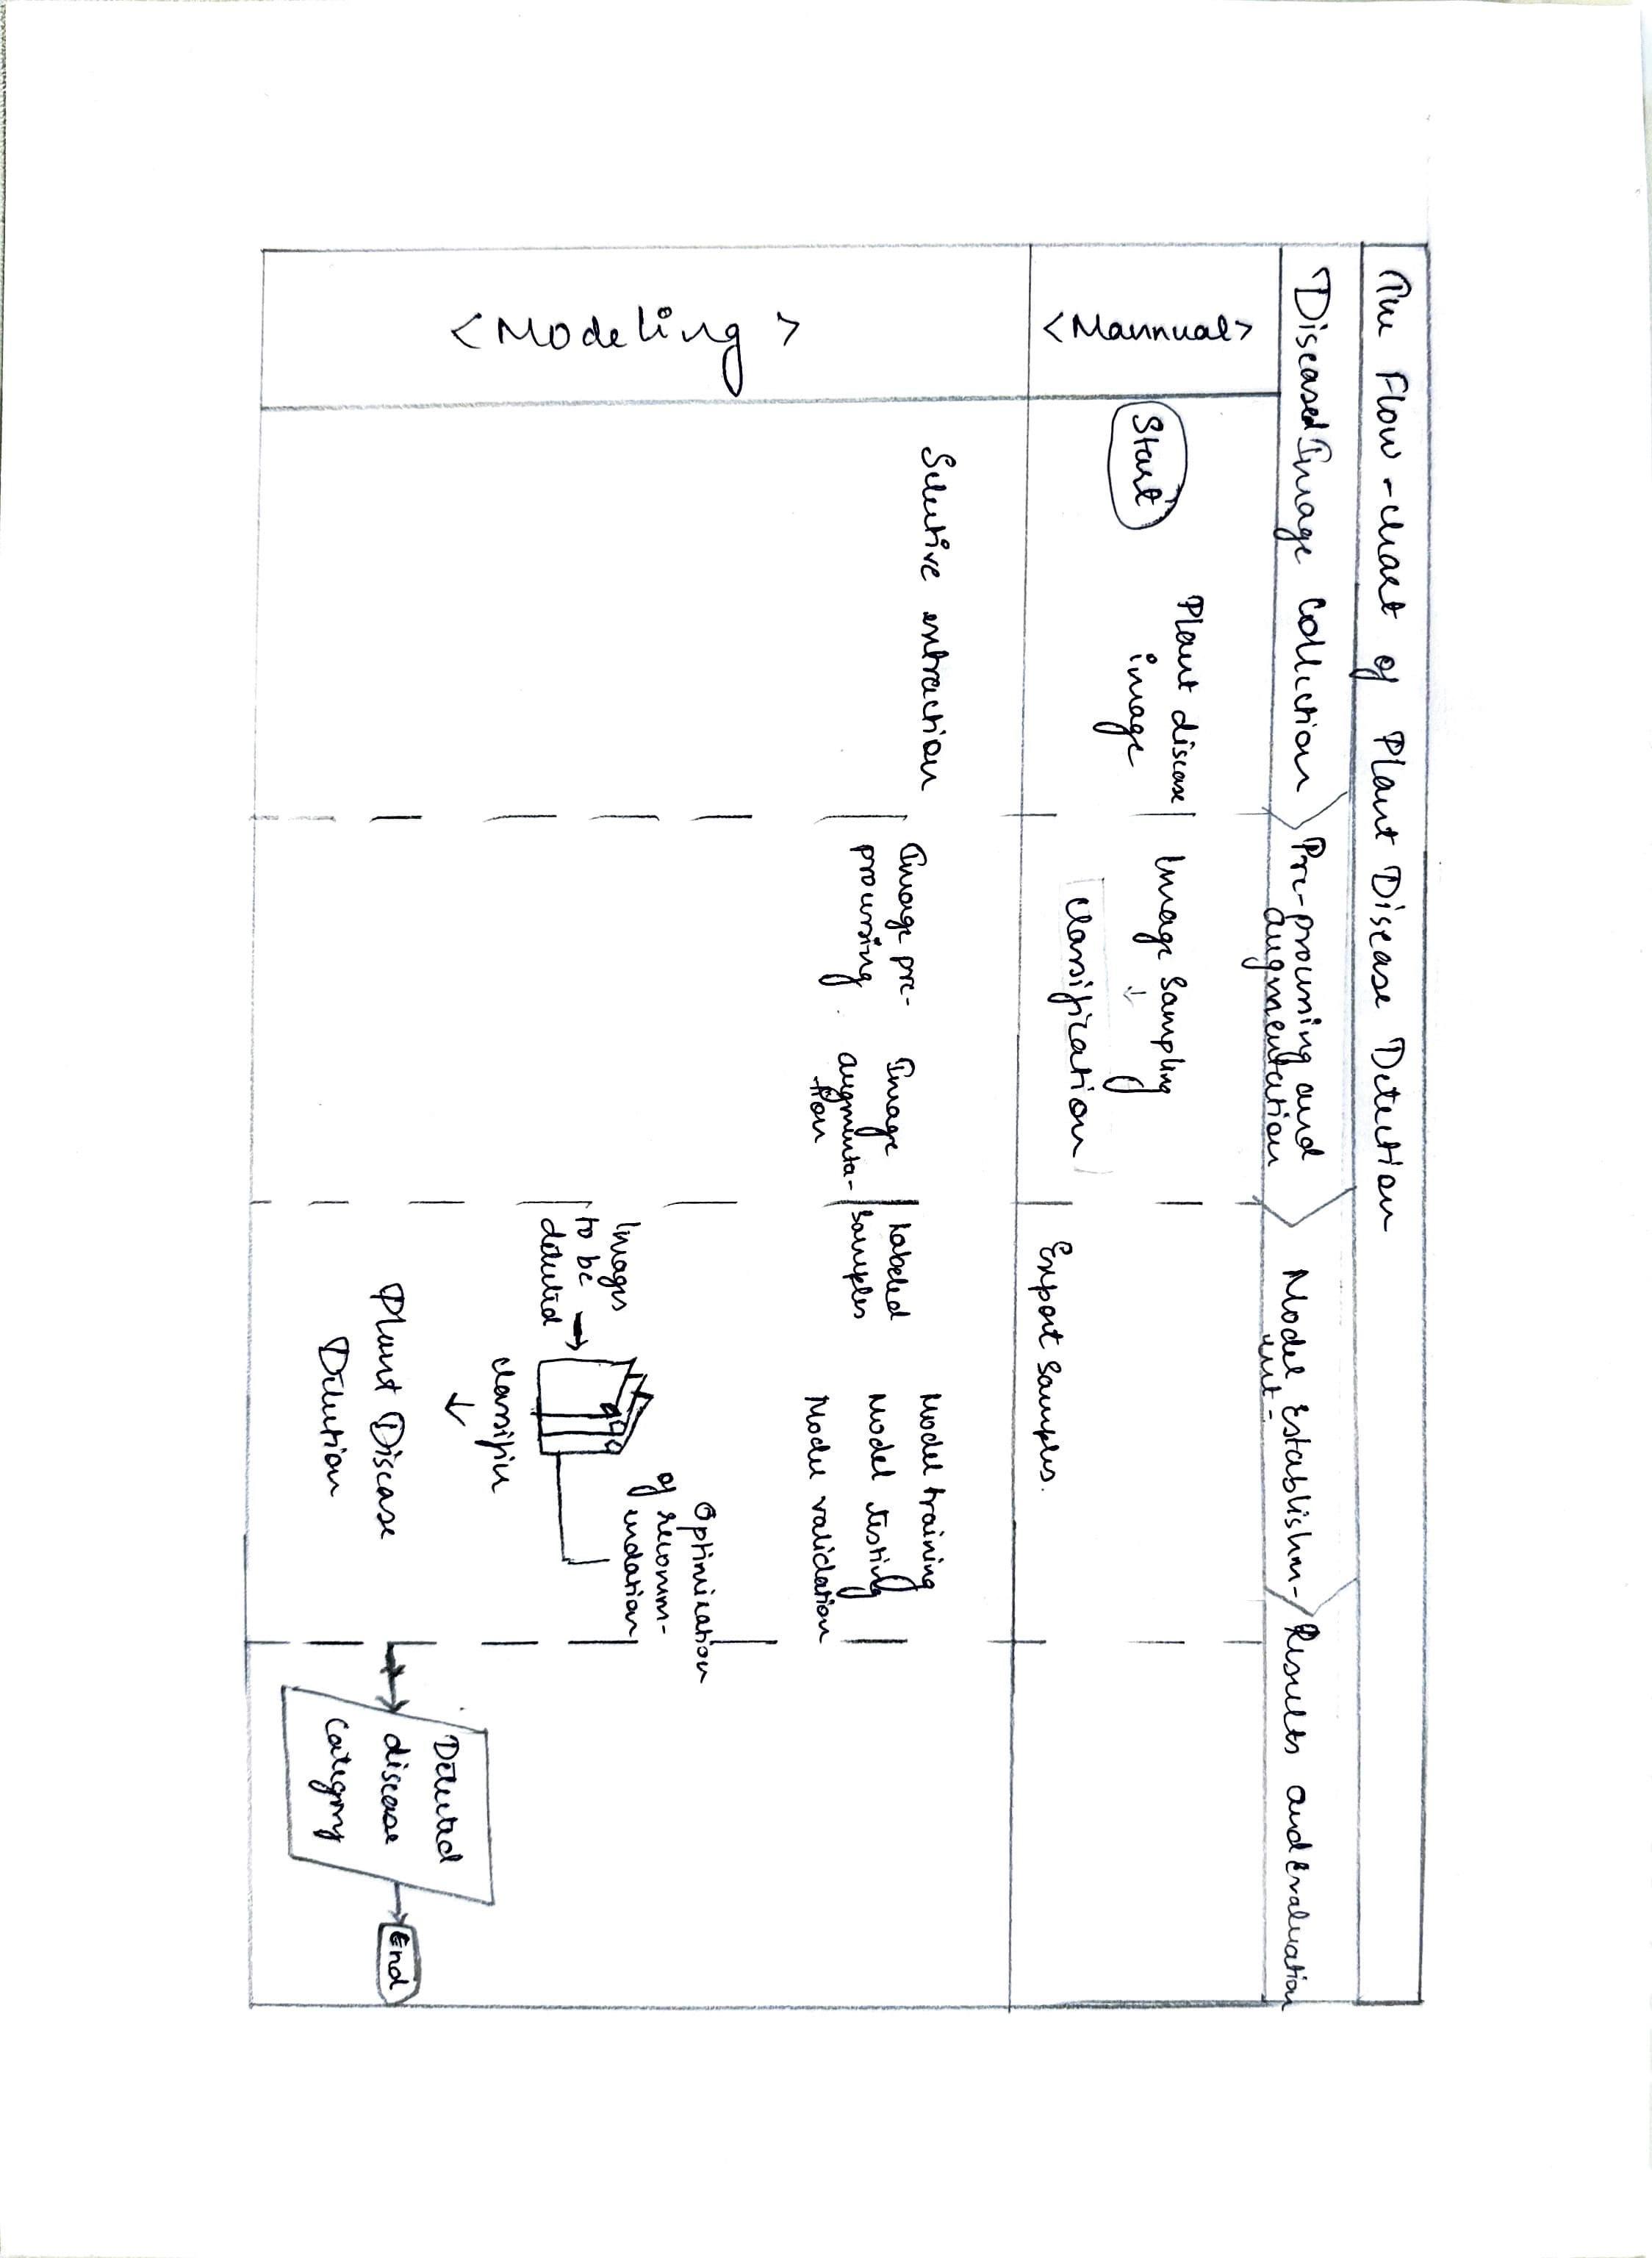 The Flow-chart of Plant Disease Detection
Diseased Image Collection
Pre-processing and
augmentation
Model Establishm-
ent-
Results and Evaluation
<Mannual>
Start
Plant disease
image
Image Sampling
↓
Classification
Export Samples.
<Modeling>
Selective extraction
Image pre-
processing
Image
augmenta-
tion
Labeled
Samples
Model training
Model testing
Model validation
Optimization
of recomm-
endation
Images
to be
detected
classifier
Plant Disease
Detection
Detected
disease
Category
End